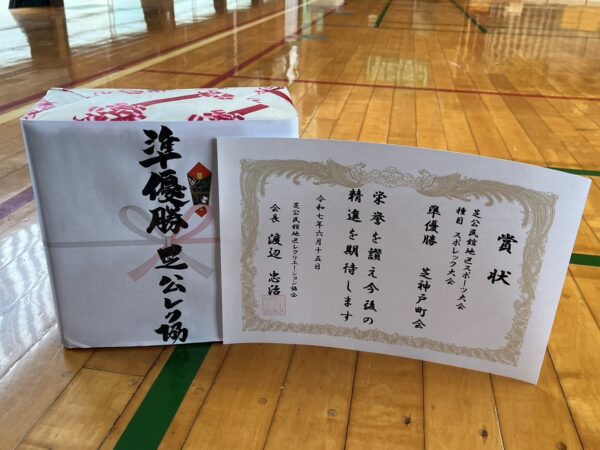 準優勝
芝公レク協
賞状
芝公民館地区スポーツ大会
種目 スポレック大会
準優勝 芝神戸町会
栄誉を讃え今後の
精進を期待します
令和七年六月十五日
芝公民館地区レクリエーション協会
会長 渡辺忠治